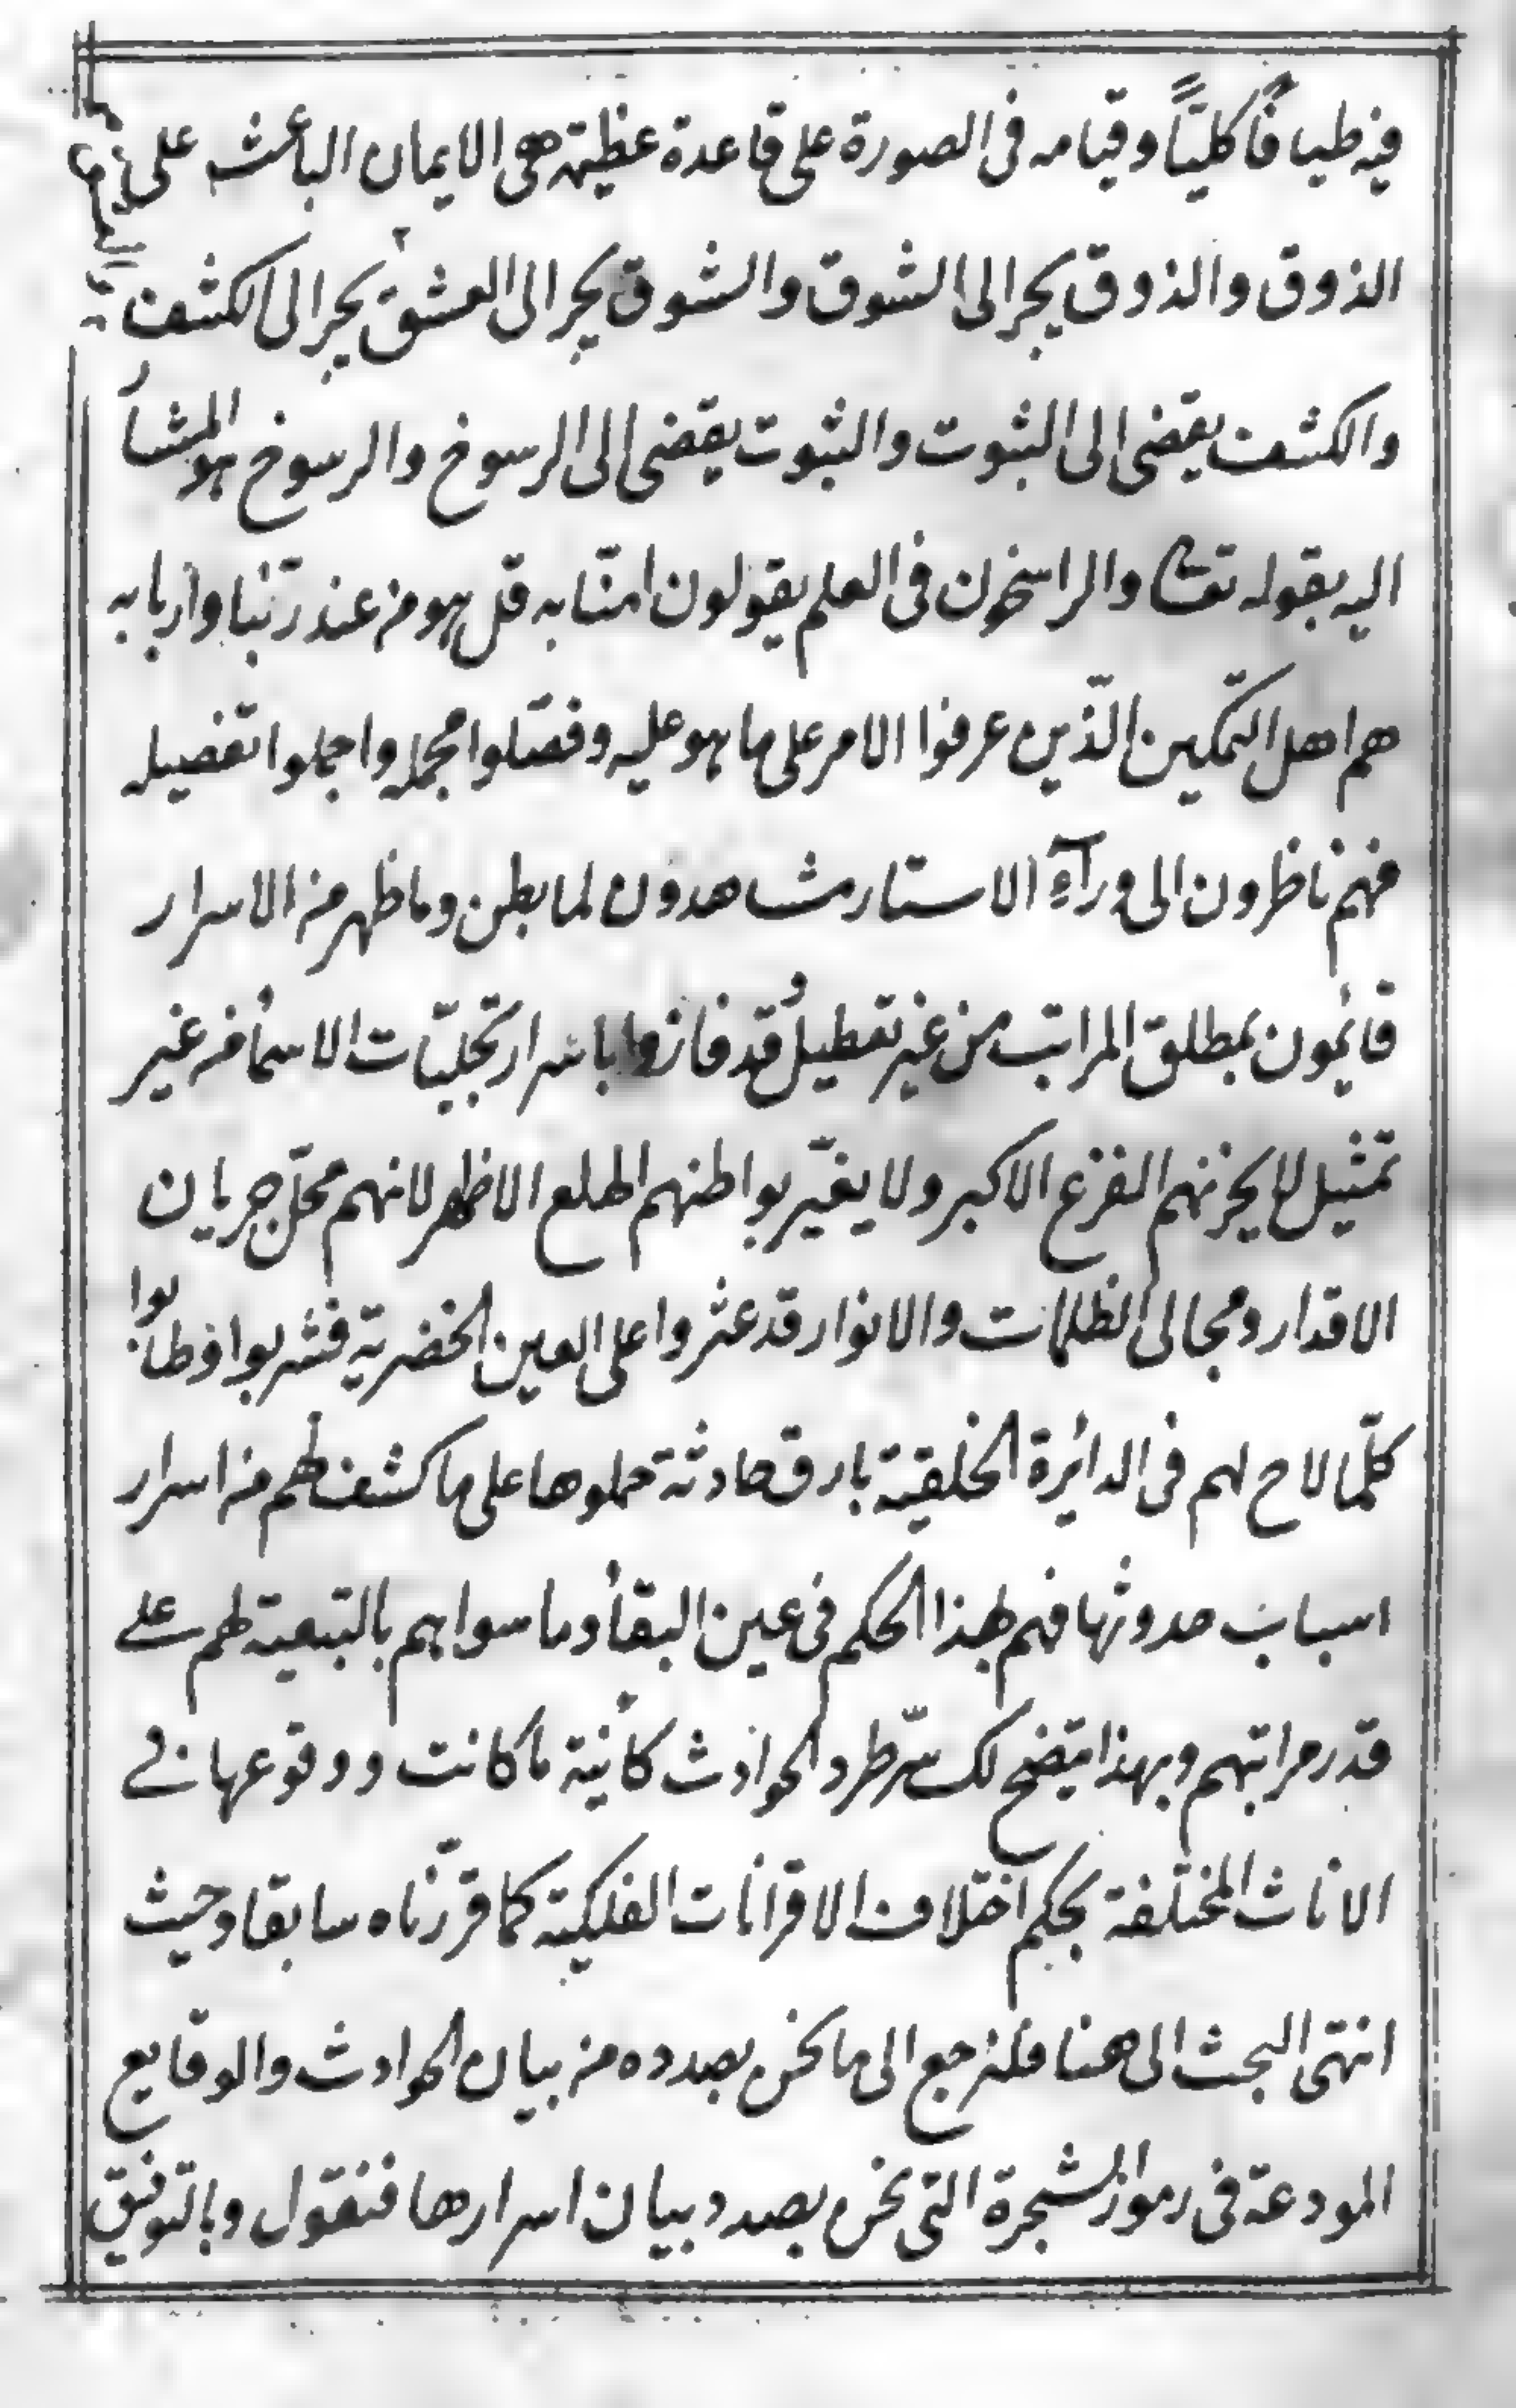 فيه طبا قًا كليّاً وقيامه فى الصورة على قاعدة عظيمة هى الايمان الباعث على
الذوق والذوق يجر الى الشوق والشوق يجر الى العشق يجر الى الكشف
والكشف يقضى الى الثبوت والثبوت يقضى الى الرسوخ والرسوخ هو المشار
اليه بقوله تعالى والراسخون فى العلم يقولون امنّا به قل هو من عند ربّنا واربابه
هم اهل التمكين الذّين عرفوا الامر على ما هو عليه وفصّلوا مجمله واجملوا تفصيله
فهم ناظرون الى ورآء الاستار مشاهدون لما بطن وما ظهر من الاسرار
قائمون بمطلق المراتب من غير تعطيل قد فازوا باسرار تجليّات الاسمأ من غير
تمثيل لا يحزنهم الفزع الاكبر ولا يغيّر بواطنهم الهلع الاظهر لانهم محلّ جريان
الاقدار ومجالى الظلمات والانوار قد عثروا على العين الخضرية فشربوا وطابوا
كلّما لاح لهم فى الدائرة الخلقية بارق حادثة حملوها على ما كشف لهم من اسرار
اسباب حدوثها فهم بهذا الحكم فى عين البقأ وما سواهم بالتبعية لهم على
قدر مراتبهم وبهذا يتضح لك سّر طرد الحوادث كائنة ما كانت ووقوعها فى
الاناث المختلفة بحكم اختلاف الاقرانات الفلكية كما قرّرناه سابقا وحيث
انتهى البحث الى هنا فلنرجع الى ما نحن بصدده من بيان الحوادث والوقايع
المودعة فى رموز الشجرة التى نحن بصدد بيان اسرارها فنقول وبالتوفيق